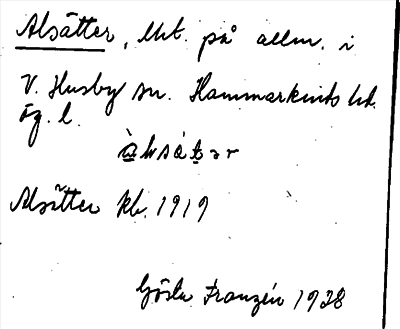 Alsätter, lht. på allm. i
V. Husby sn. Hammarkinds hd.
Ög. l.
Alsätter kb. 1919
Gösta Franzén 1928